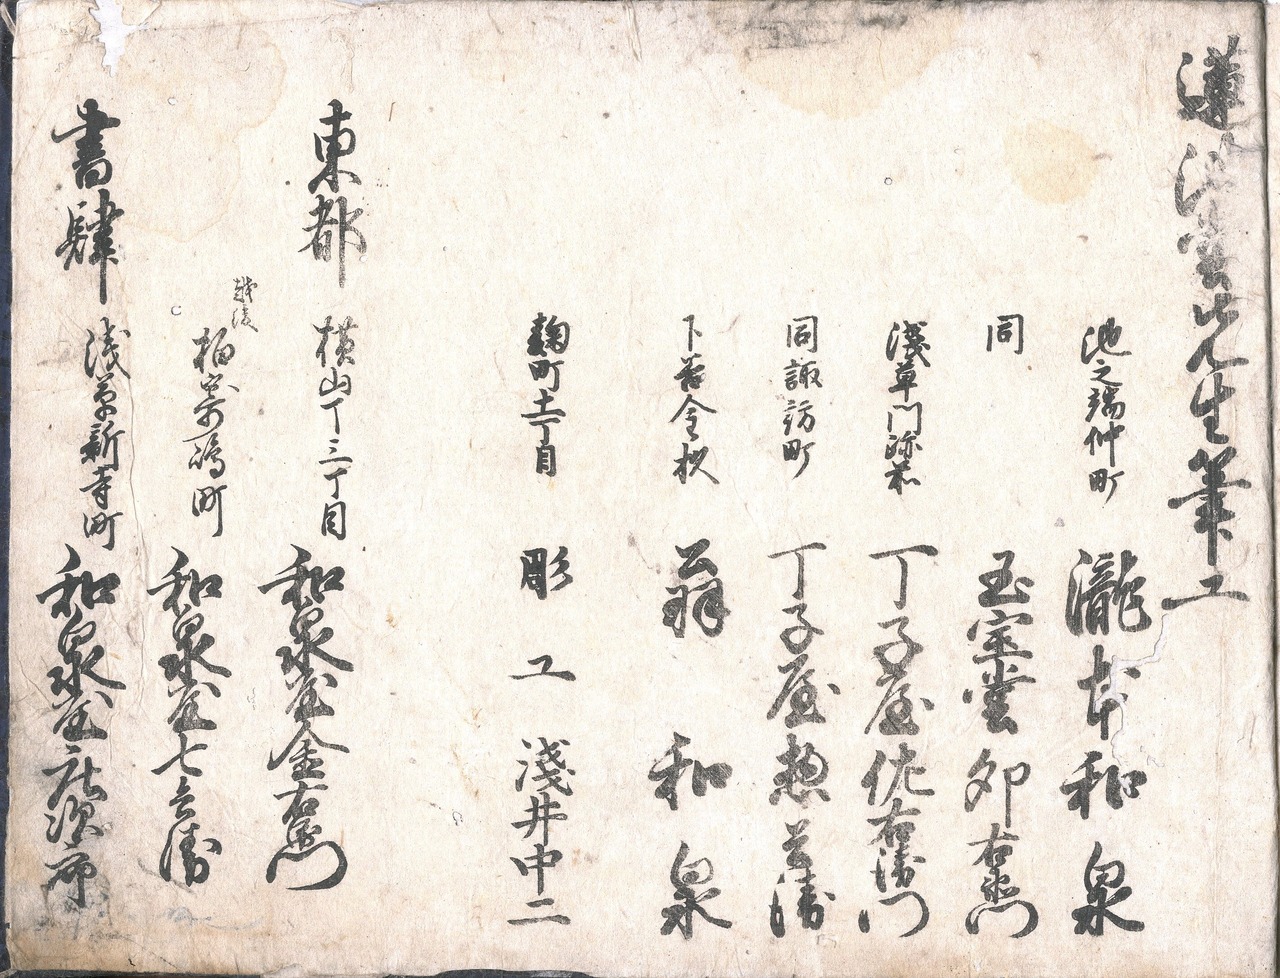 蓮池堂先生筆工
池之端仲町 瀧本和泉
同 玉宝堂卯右衛門
淺草門跡前 丁子屋佐右衛門
同諏訪町 丁子屋惣兵衛
下谷金杦 翁和泉
麹町十二丁目 彫工 淺井中二
東都 横山丁三丁目 和泉屋金右衛門
越後 柏崎嶋町 和泉屋七兵衛
書肆 浅草新寺町 和泉屋庄次郎